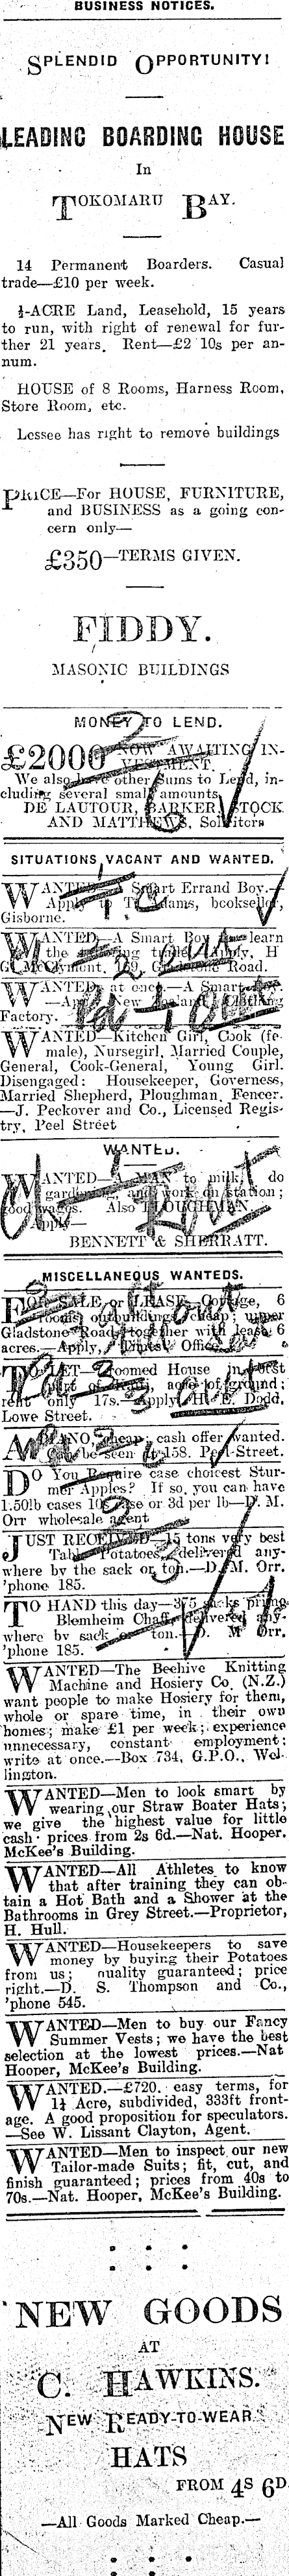 BUSINESS NOTICES.
SPLENDID OPPORTUNITY!
LEADING BOARDING HOUSE
In
TOKOMARU BAY.
14 Permanent Boarders. Casual
trade—£10 per week.
½-ACRE Land, Leasehold, 15 years
to run, with right of renewal for fur-
ther 21 years. Rent—£2 10s per an-
num.
HOUSE of 8 Rooms, Harness Room,
Store Room, etc.
Lessee has right to remove buildings
PRICE—For HOUSE, FURNITURE,
and BUSINESS as a going con-
cern only—
£350—TERMS GIVEN.
FIDDY.
MASONIC BUILDINGS
MONEY TO LEND.
£2000 NOW AWAITING IN-
VESTMENT.
We also have other Sums to Lend, in-
cluding several small amounts
DE LAUTOUR, BARKER STOCK
AND MATTHEWS, Solicitors
SITUATIONS VACANT AND WANTED.
WANTED—Smart Errand Boy.—
Apply bookseller,
Gisborne.
WANTED—A Smart Boy learn
the H
Road.
WANTED at once—A Smart
New Clothing
Factory.
WANTED—Kitchen Girl, Cook (fe-
male), Nursegirl, Married Couple,
General, Cook-General, Young Girl.
Disengaged: Housekeeper, Governess,
Married Shepherd, Ploughman, Fencer.
—J. Peckover and Co., Licensed Regis-
try, Peel Street
WANTED.
WANTED—A MAN to milk, do
gardening, and work on station;
good wages. Also PLOUGHMAN.
Apply—
BENNETT & SHERRATT.
MISCELLANEOUS WANTEDS.
FOR SALE or LEASE—Cottage, 6
rooms, outbuildings; cheap; upper
Gladstone Road; together with lease 6
acres.—Apply, "Times" Office.
TO LET—roomed House in best
part of acre of ground;
rent only 17s.—Apply H. E. Dodd,
Lowe Street.
A PIANO, cheap; cash offer wanted.
Can be seen at 158, Peel Street.
DO You Require case choicest Stur-
mer Apples? If so, you can have
1.50lb cases 10s case or 3d per lb—D. M.
Orr wholesale agent
JUST RECEIVED—15 tons very best
Table Potatoes, delivered any-
where by the sack or ton.—D. M. Orr.
'phone 185.
TO HAND this day—375 sacks prime
Blemheim Chaff, delivered any-
where by sack or ton.—D. M Orr.
'phone 185.
WANTED—The Beehive Knitting
Machine and Hosiery Co. (N.Z.)
want people to make Hosiery for them,
whole or spare time, in their own
homes; make £1 per week; experience
unnecessary, constant employment;
write at once.—Box 734, G.P.O., Wel-
lington.
WANTED—Men to look smart by
wearing our Straw Boater Hats;
we give the highest value for little
cash; prices from 2s 6d.—Nat. Hooper.
McKee's Building.
WANTED—All Athletes to know
that after training they can ob-
tain a Hot Bath and a Shower at the
Bathrooms in Grey Street.—Proprietor,
H. Hull.
WANTED—Housekeepers to save
money by buying their Potatoes
from us; quality guaranteed; price
right.—D. S. Thompson and Co.,
'phone 545.
WANTED—Men to buy our Fancy
Summer Vests; we have the best
selection at the lowest prices.—Nat
Hooper, McKee's Building.
WANTED.—£720. easy terms, for
1¼ Acre, subdivided, 333ft front-
age. A good proposition for speculators.
—See W. Lissant Clayton, Agent.
WANTED—Men to inspect our new
Tailor-made Suits; fit, cut, and
finish guaranteed; prices from 40s to
70s.—Nat. Hooper, McKee's Building.
NEW GOODS
AT
C. HAWKINS.
NEW READY-TO-WEAR
HATS
FROM 4S 6D
—All Goods Marked Cheap.—